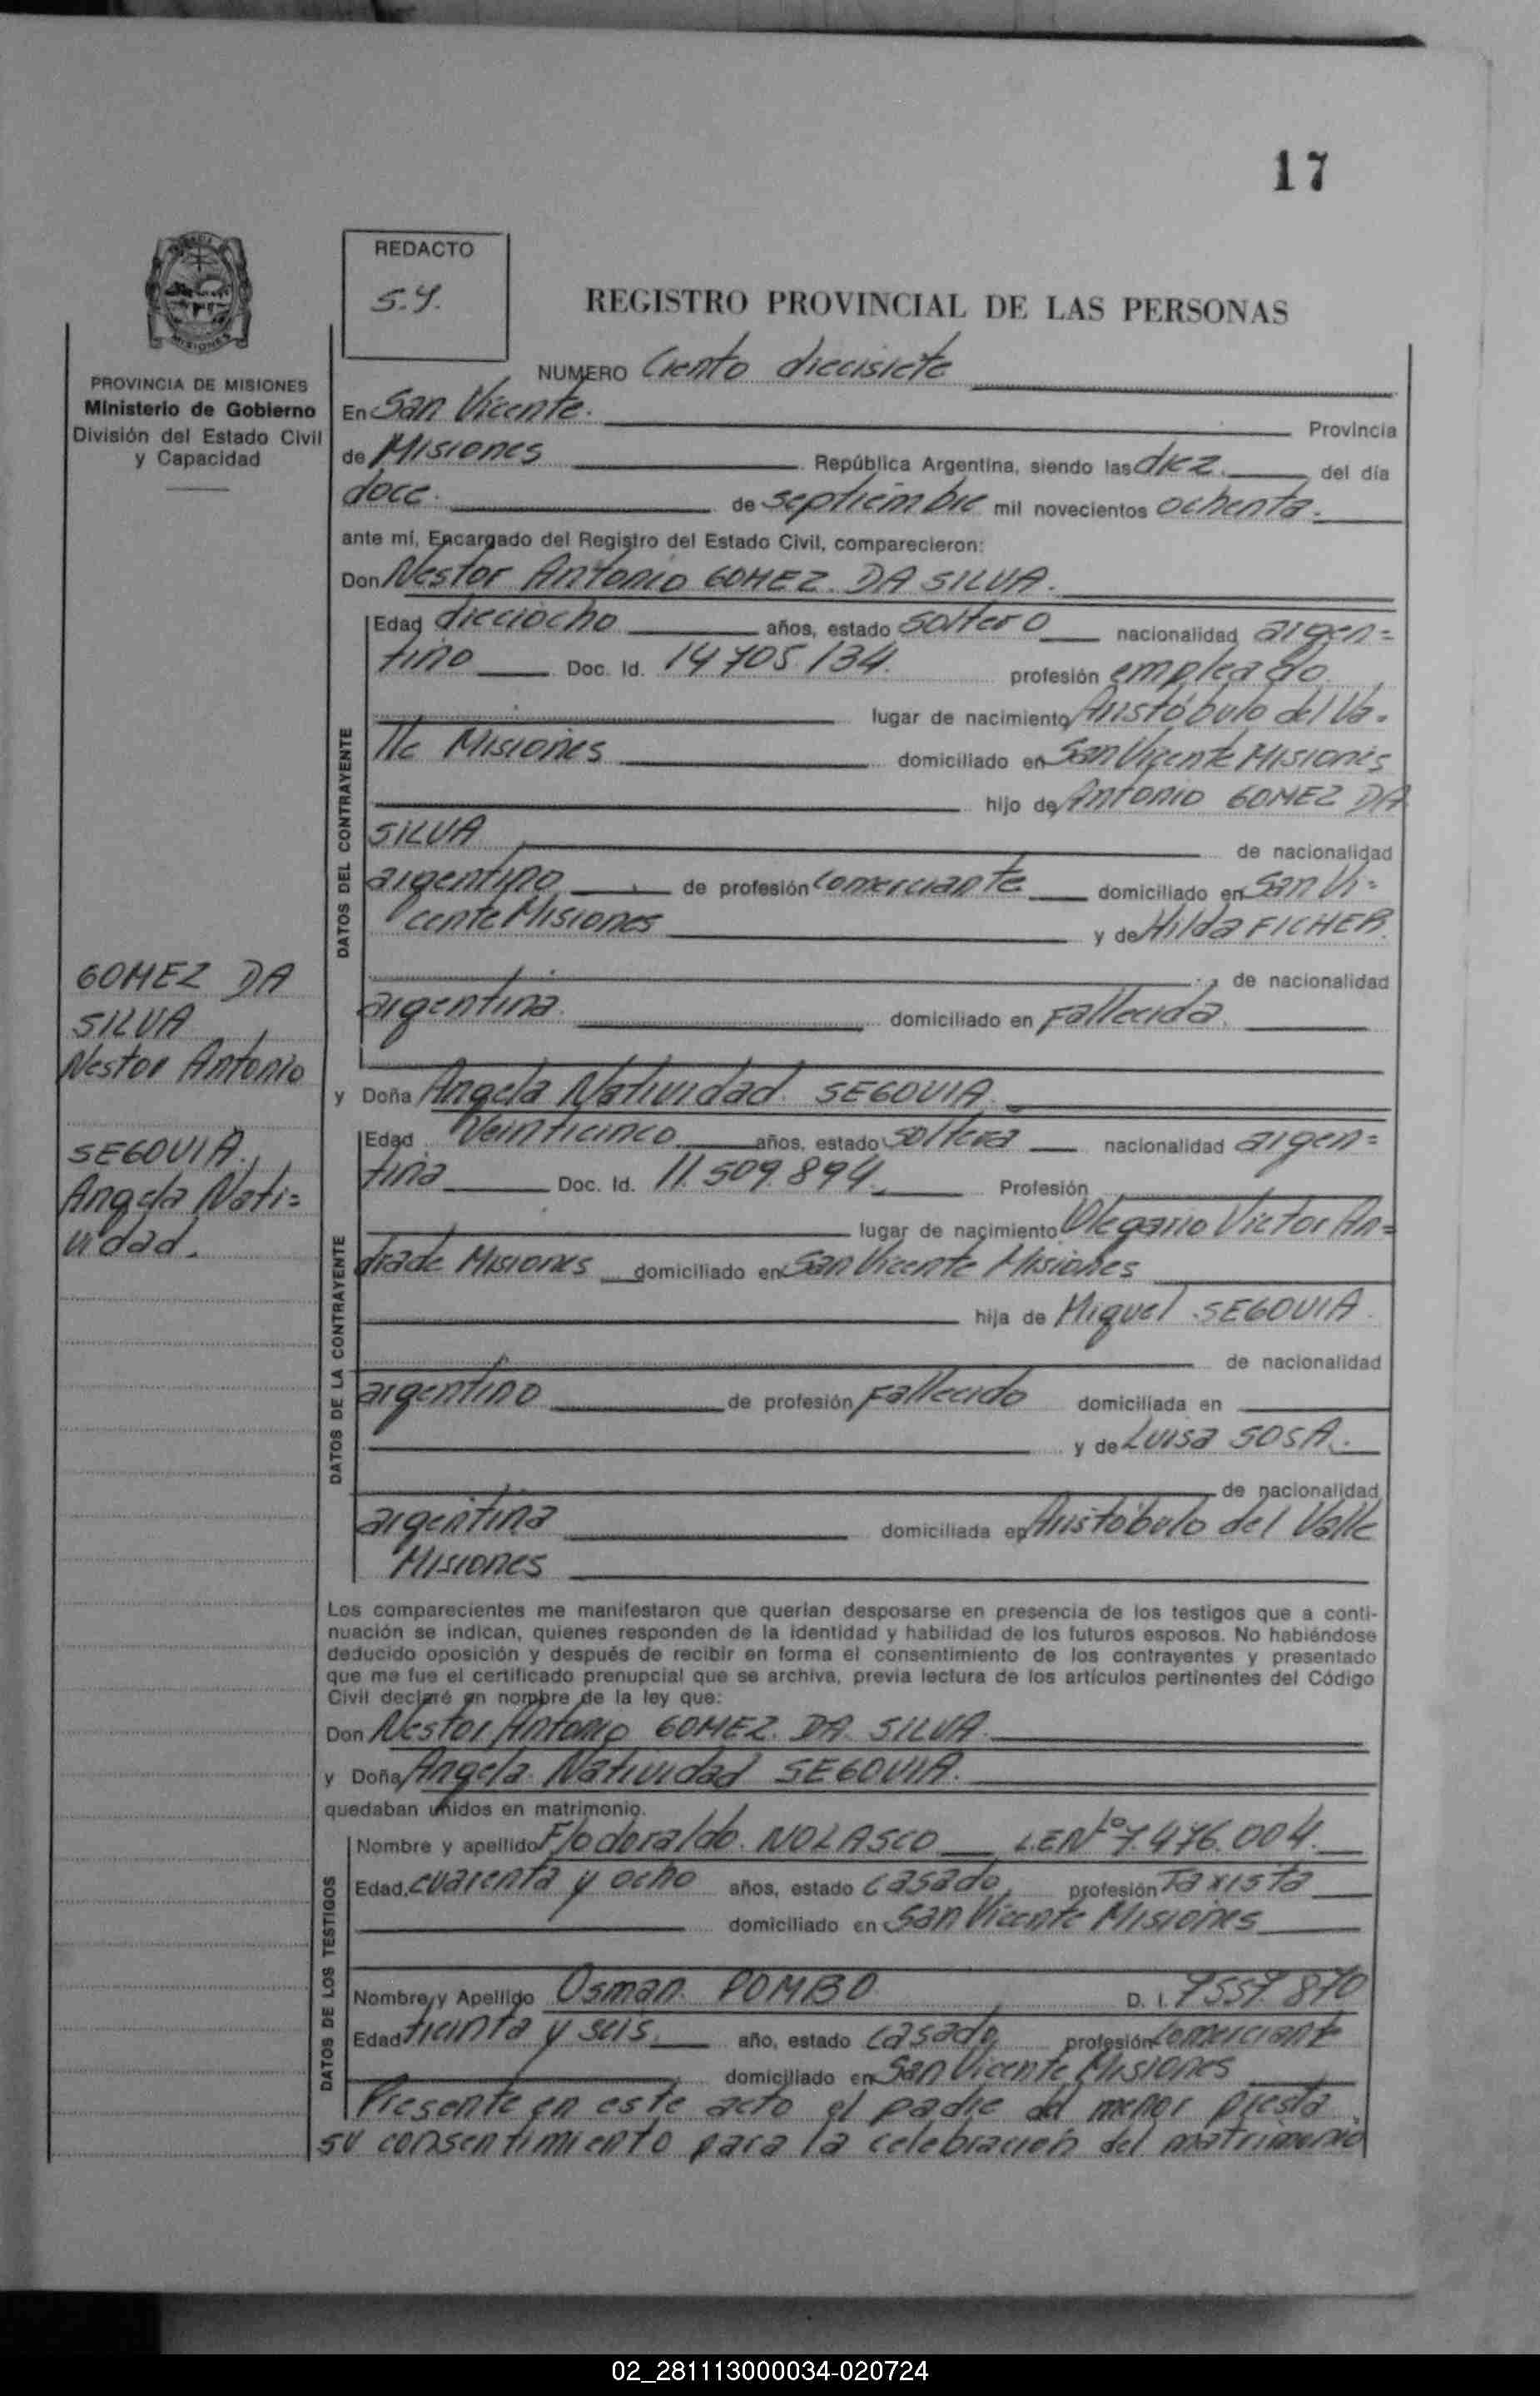 17
REDACTO
S.Y.
REGISTRO PROVINCIAL DE LAS PERSONAS
MISIONES
PROVINCIA DE MISIONES
Ministerio de Gobierno
División del Estado Civil
y Capacidad
NUMERO Ciento diecisiete
En San Vicente. Provincia
de Misiones República Argentina, siendo las diez del día
doce. de septiembre mil novecientos ochenta.
ante mí, Encargado del Registro del Estado Civil, comparecieron:
Don Nestor Antonio GOMEZ DA SILVA.
DATOS DEL CONTRAYENTE
Edad dieciocho años, estado soltero nacionalidad argen=
tino Doc. Id. 14705.134. profesión empleado.
lugar de nacimiento Aristóbulo del Va=
lle Misiones domiciliado en San Vicente Misiones
hijo de Antonio GOMEZ DA
SILVA de nacionalidad
argentino de profesión comerciante domiciliado en San Vi=
cente Misiones y de Hilda FICHER.
de nacionalidad
argentina. domiciliado en Fallecida.
GOMEZ DA
SILVA
Nestor Antonio
SEGOVIA.
Angela Nati=
vidad.
y Doña Angela Natividad SEGOVIA.
DATOS DE LA CONTRAYENTE
Edad Veinticinco años, estado soltera nacionalidad argen=
tina Doc. Id. 11.509.894. Profesión
lugar de nacimiento Olegario Victor An=
drade Misiones domiciliado en San Vicente Misiones
hija de Miguel SEGOVIA.
de nacionalidad
argentino de profesión Fallecido domiciliada en
y de Luisa SOSA.
de nacionalidad
argentina domiciliada en Aristóbulo del Valle
Misiones
Los comparecientes me manifestaron que querían desposarse en presencia de los testigos que a conti-
nuación se indican, quienes responden de la identidad y habilidad de los futuros esposos. No habiéndose
deducido oposición y después de recibir en forma el consentimiento de los contrayentes y presentado
que me fue el certificado prenupcial que se archiva, previa lectura de los artículos pertinentes del Código
Civil declaré en nombre de la ley que:
Don Nestor Antonio GOMEZ DA SILVA.
y Doña Angela Natividad SEGOVIA.
quedaban unidos en matrimonio.
DATOS DE LOS TESTIGOS
Nombre y apellido Flodoraldo. NOLASCO L.E.Nº 7.476.004.
Edad cuarenta y ocho años, estado casado, profesión Taxista
domiciliado en San Vicente Misiones
Nombre y Apellido Osman POMBO D. I. 7557.870
Edad treinta y seis. año, estado casado, profesión comerciante
domiciliado en San Vicente Misiones
Presente en este acto el padre del menor presta
su consentimiento para la celebración del matrimonio
02_281113000034-020724